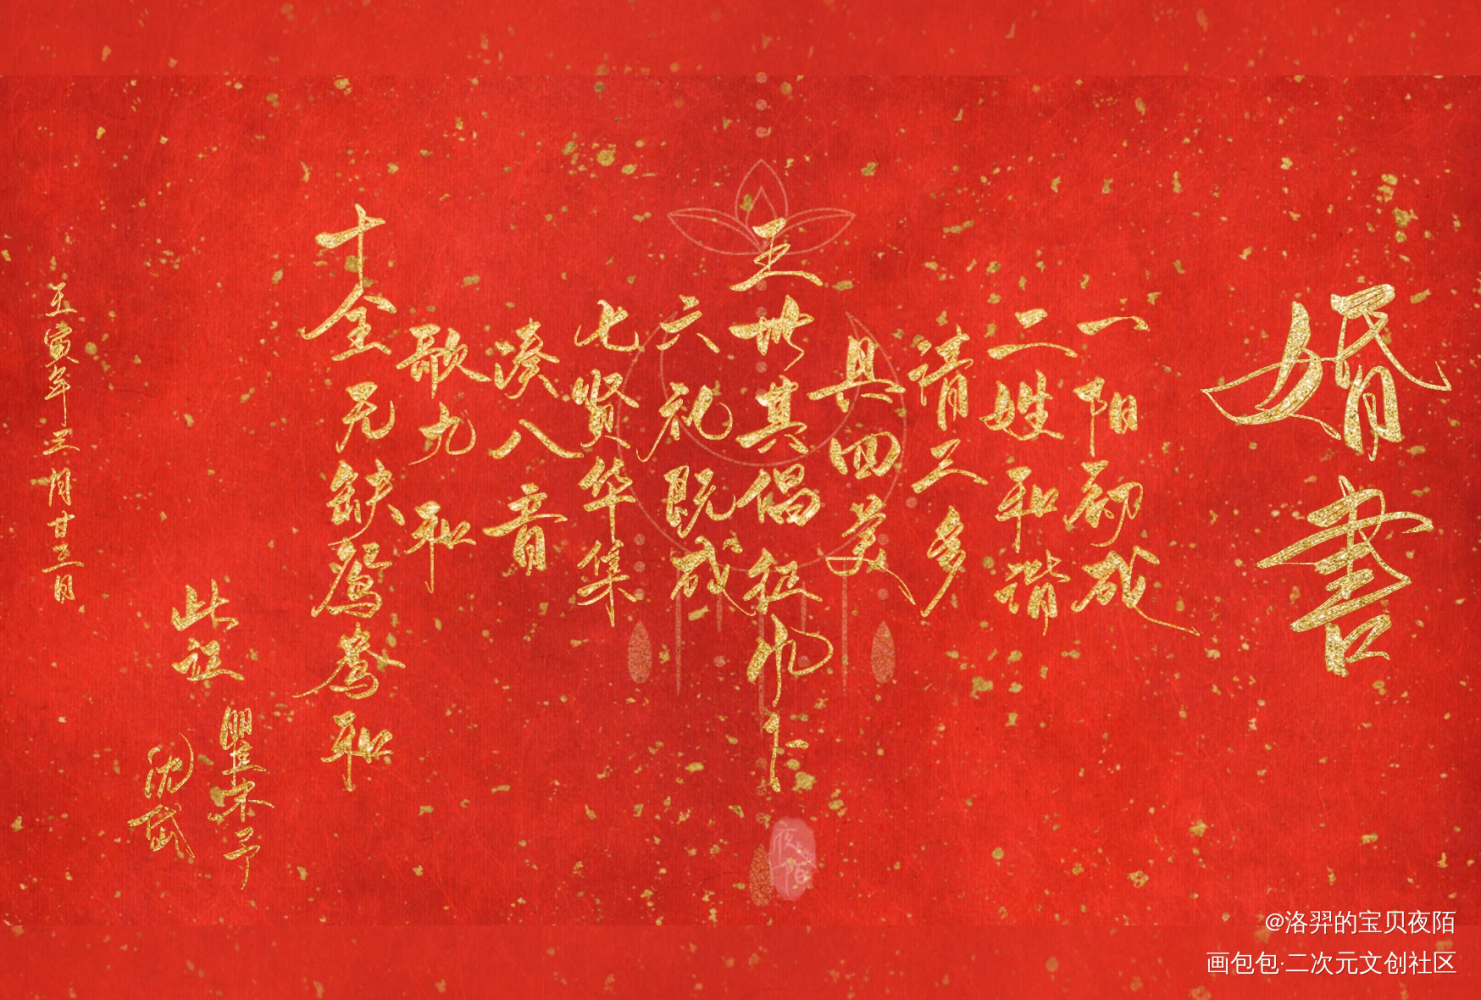 婚書
一阳初成
二姓和谐
请三多
具四美
五世其倡征凤卜
六礼既成
七贤毕集
凑八音
歌九和
十全无缺鸳鸯和
此证
瞿末予
沈岱
壬寅年三月廿三日
夜陌
@洛羿的宝贝夜陌
画包包·二次元文创社区